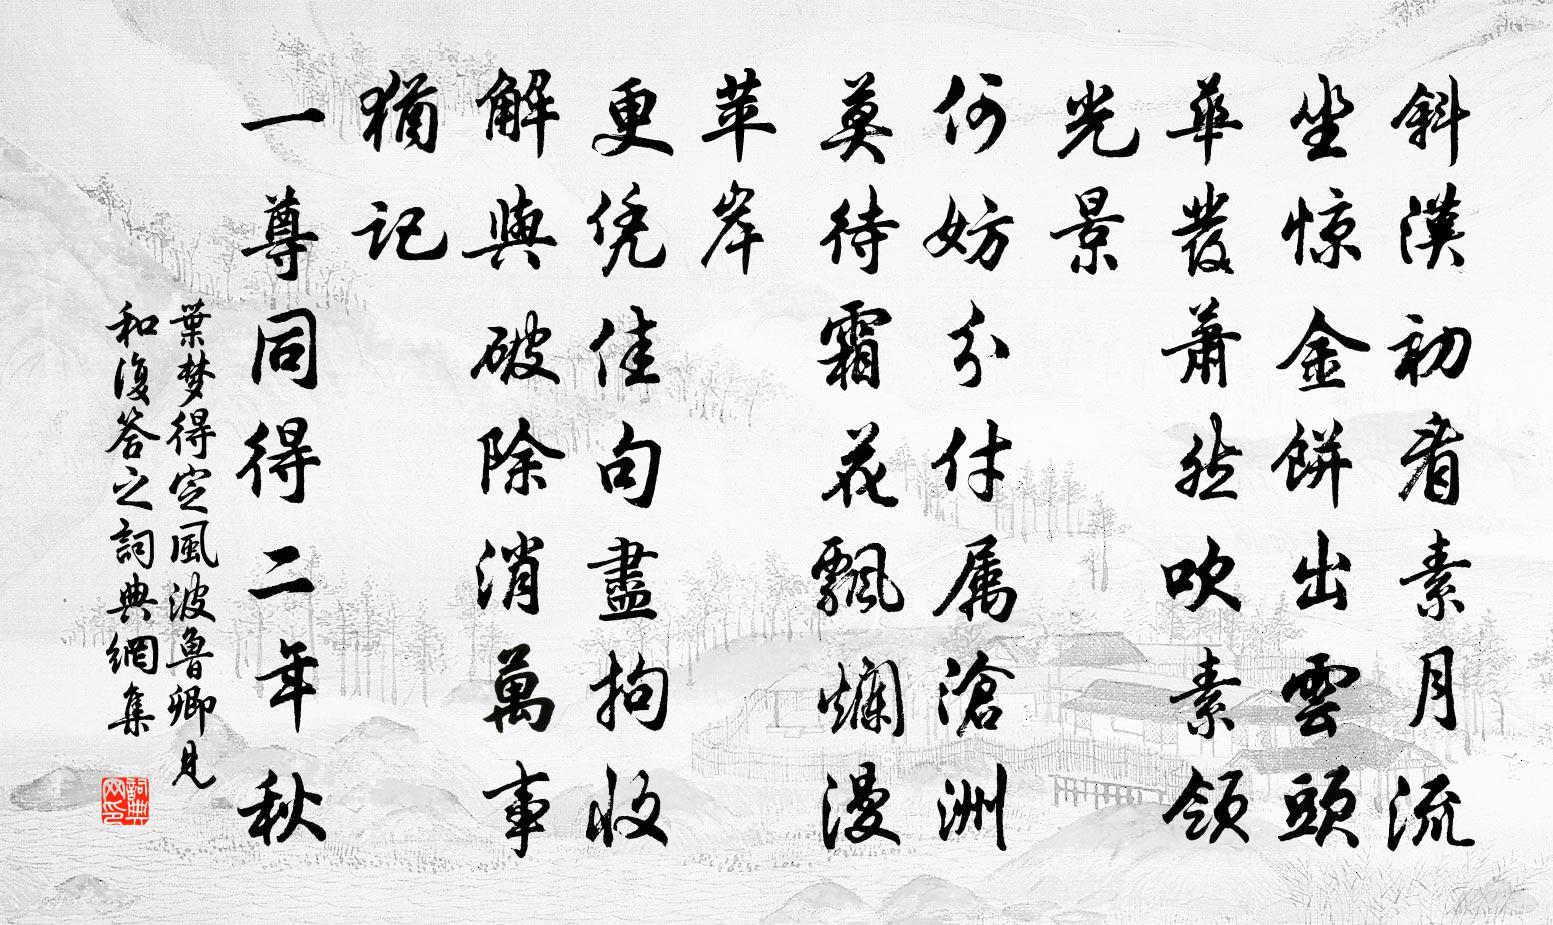 斜漢初看素月流
坐惊金餅出雲頭
華發蕭然吹素領
光景
何妨分付属滄洲
莫待霜花飄爛漫
苹岸
更凭佳句盡拘收
解與破除消萬事
猶記
一尊同得二年秋
葉梦得定風波魯卿見
和復答之詞典網集
詞典网印